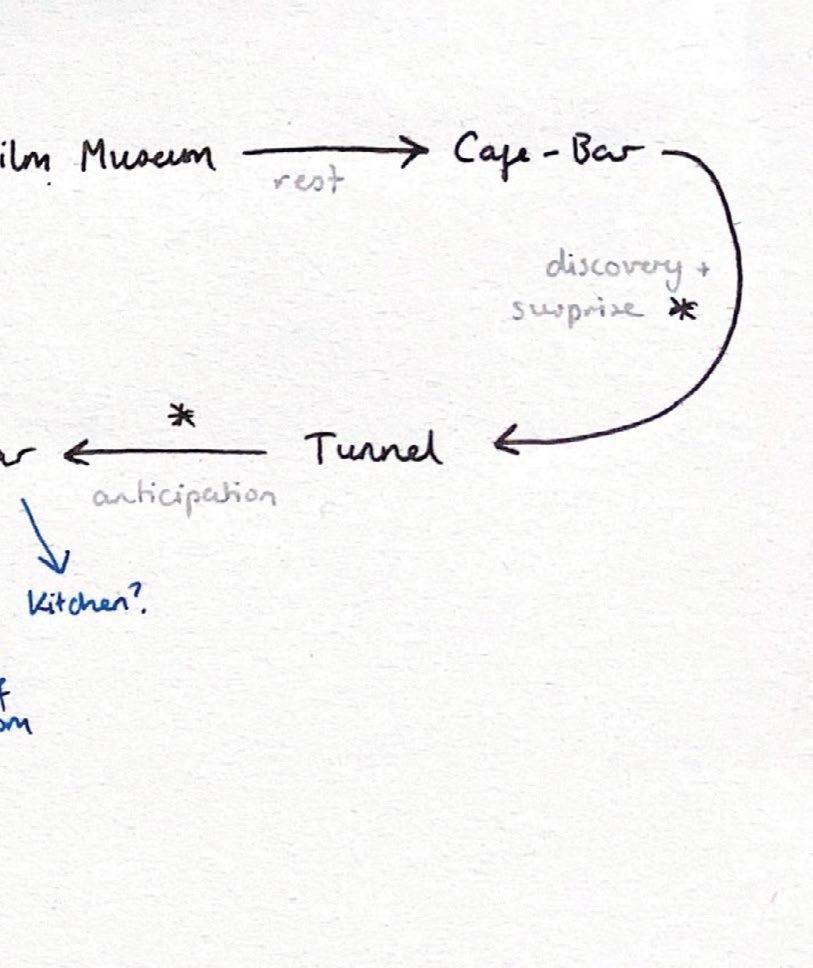 ilm Museum → Cafe - Bar
rest
discovery +
surprise *
*
ar ← Tunnel
anticipation
Kitchen?
f
om